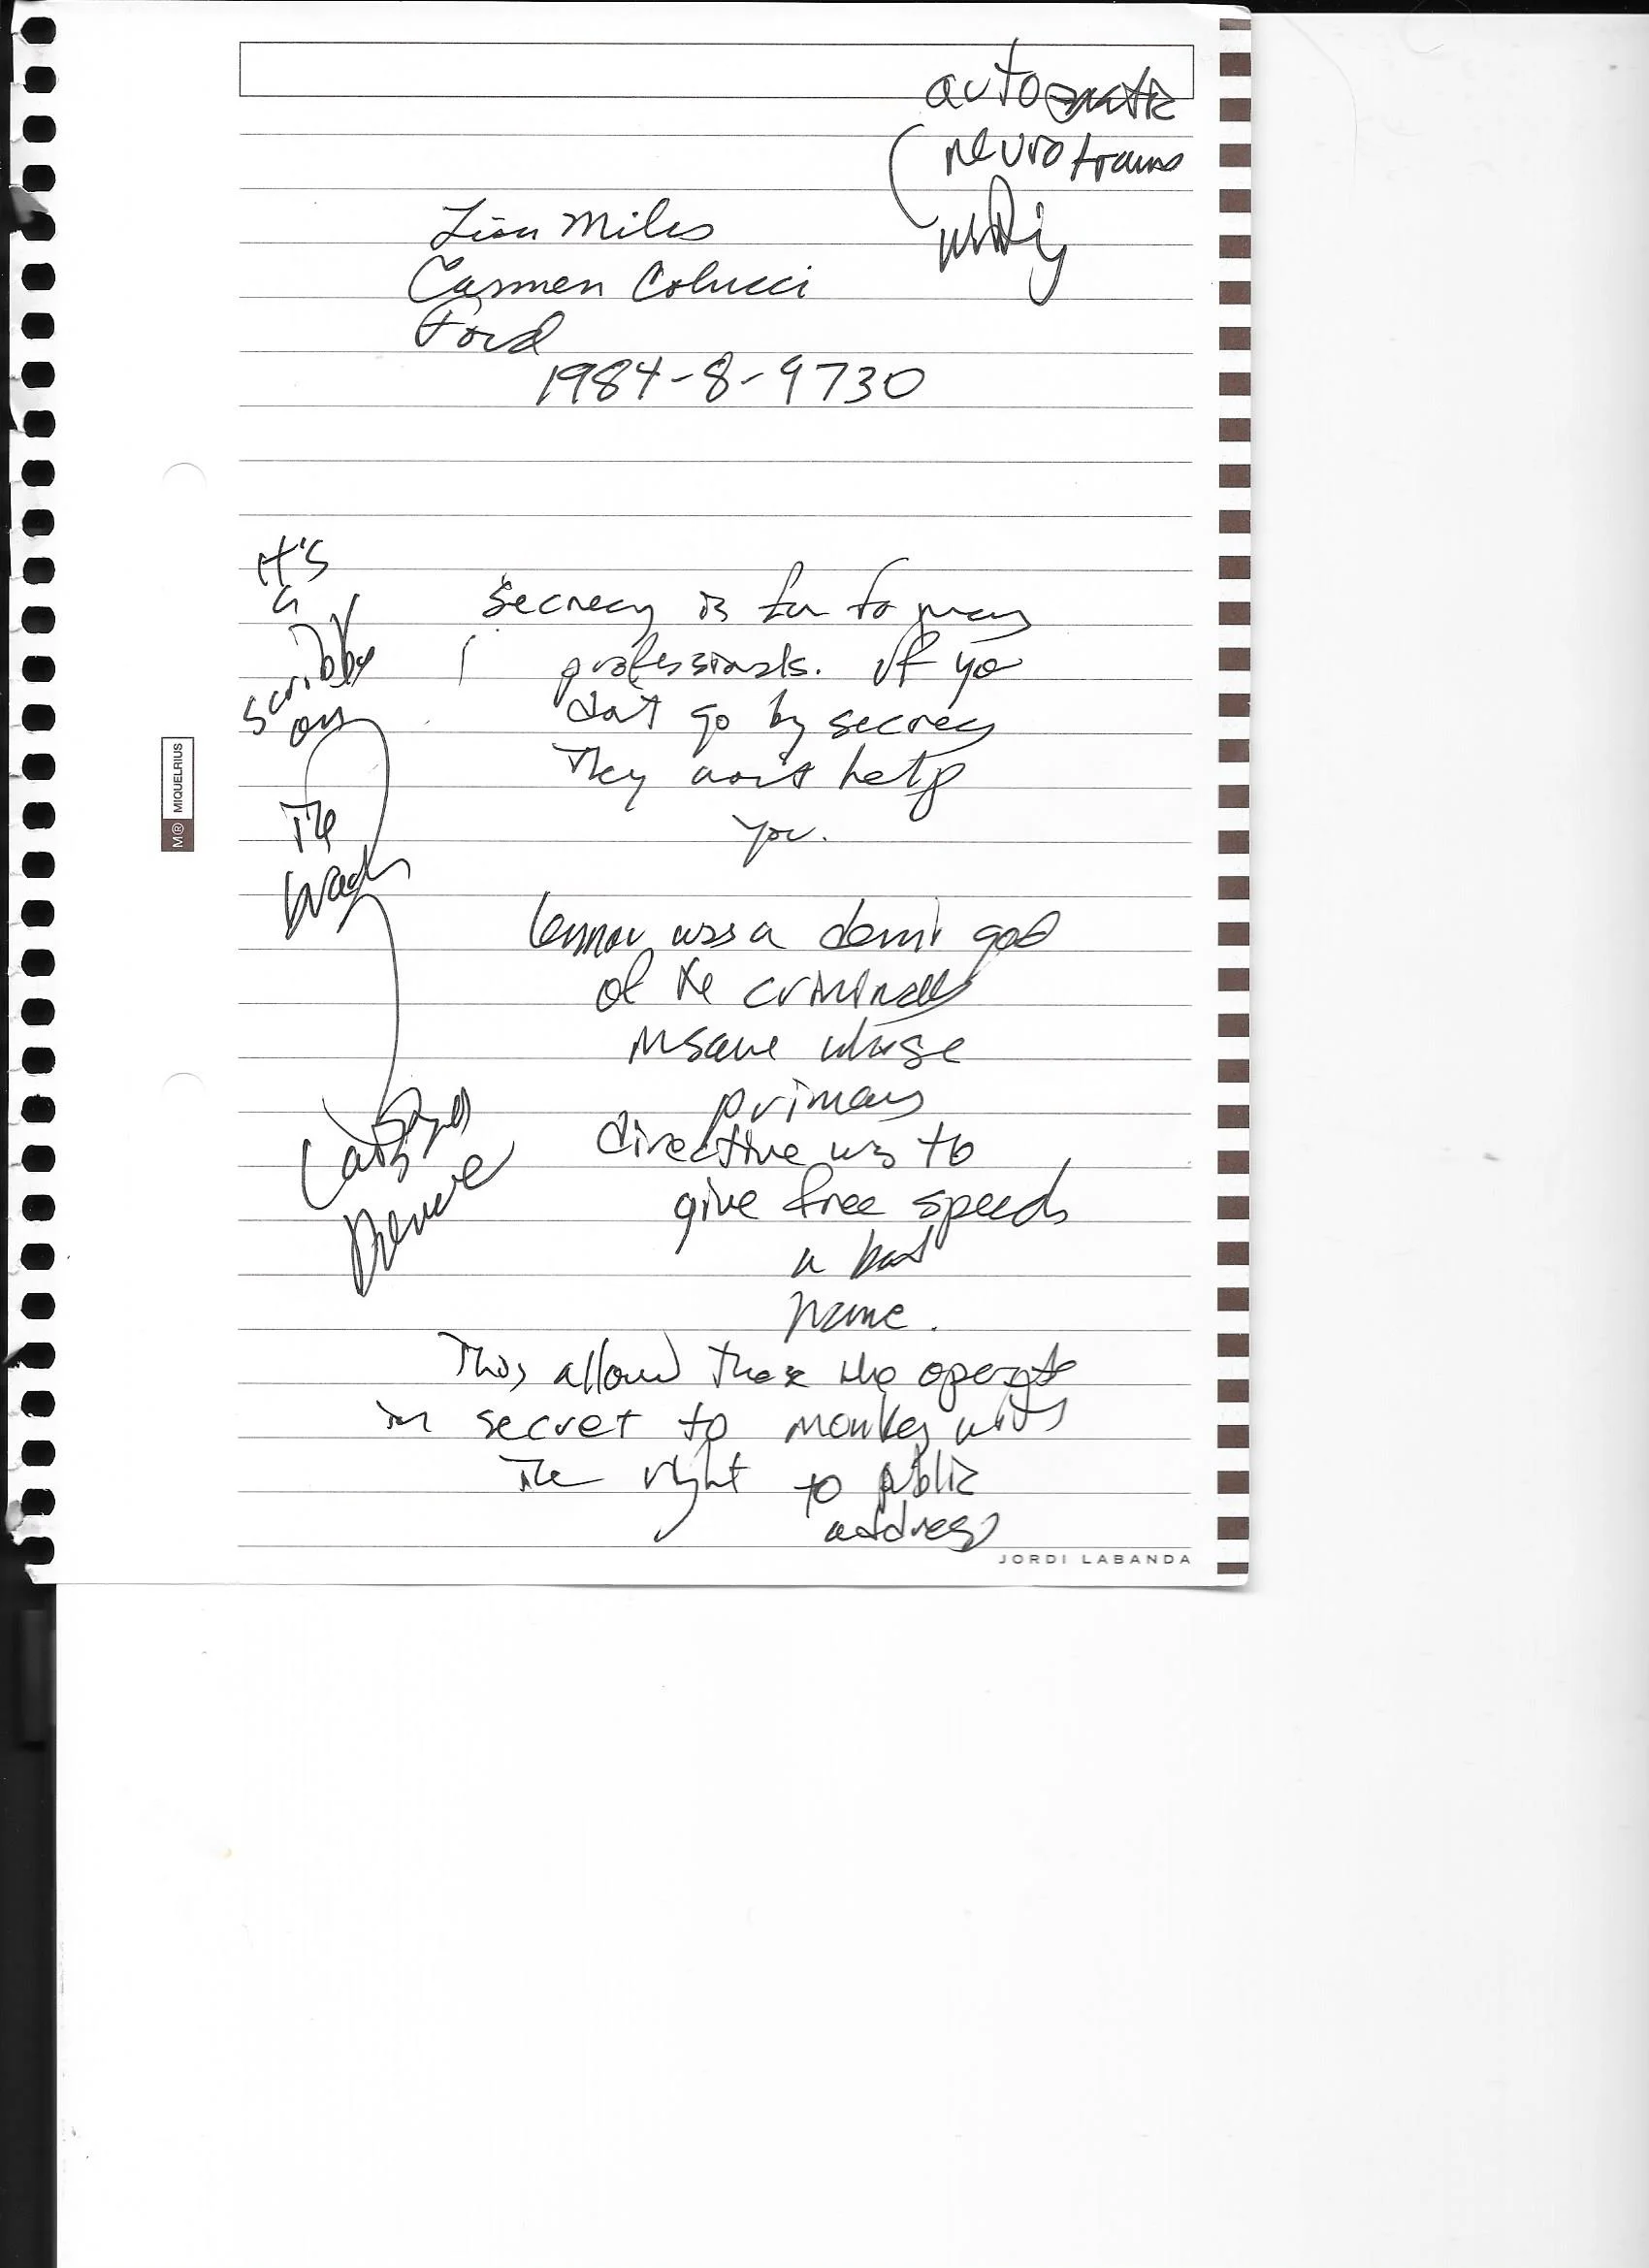 automatic
neurotrans
Lisa Miles
Carmen Colucci
Ford
1984-8-9730
It's
a
scribbly
on
The
secrecy is fun for many
professionals. If you
don't go by secrecy
They won't help
you.
MR MIQUELRIUS
was a demi god
of the criminally
insane whose
primary
directive was to
give free speech
a bad
name.
This allowed those who operate
in secret to monkey with
The right to public
address
JORDI LABANDA